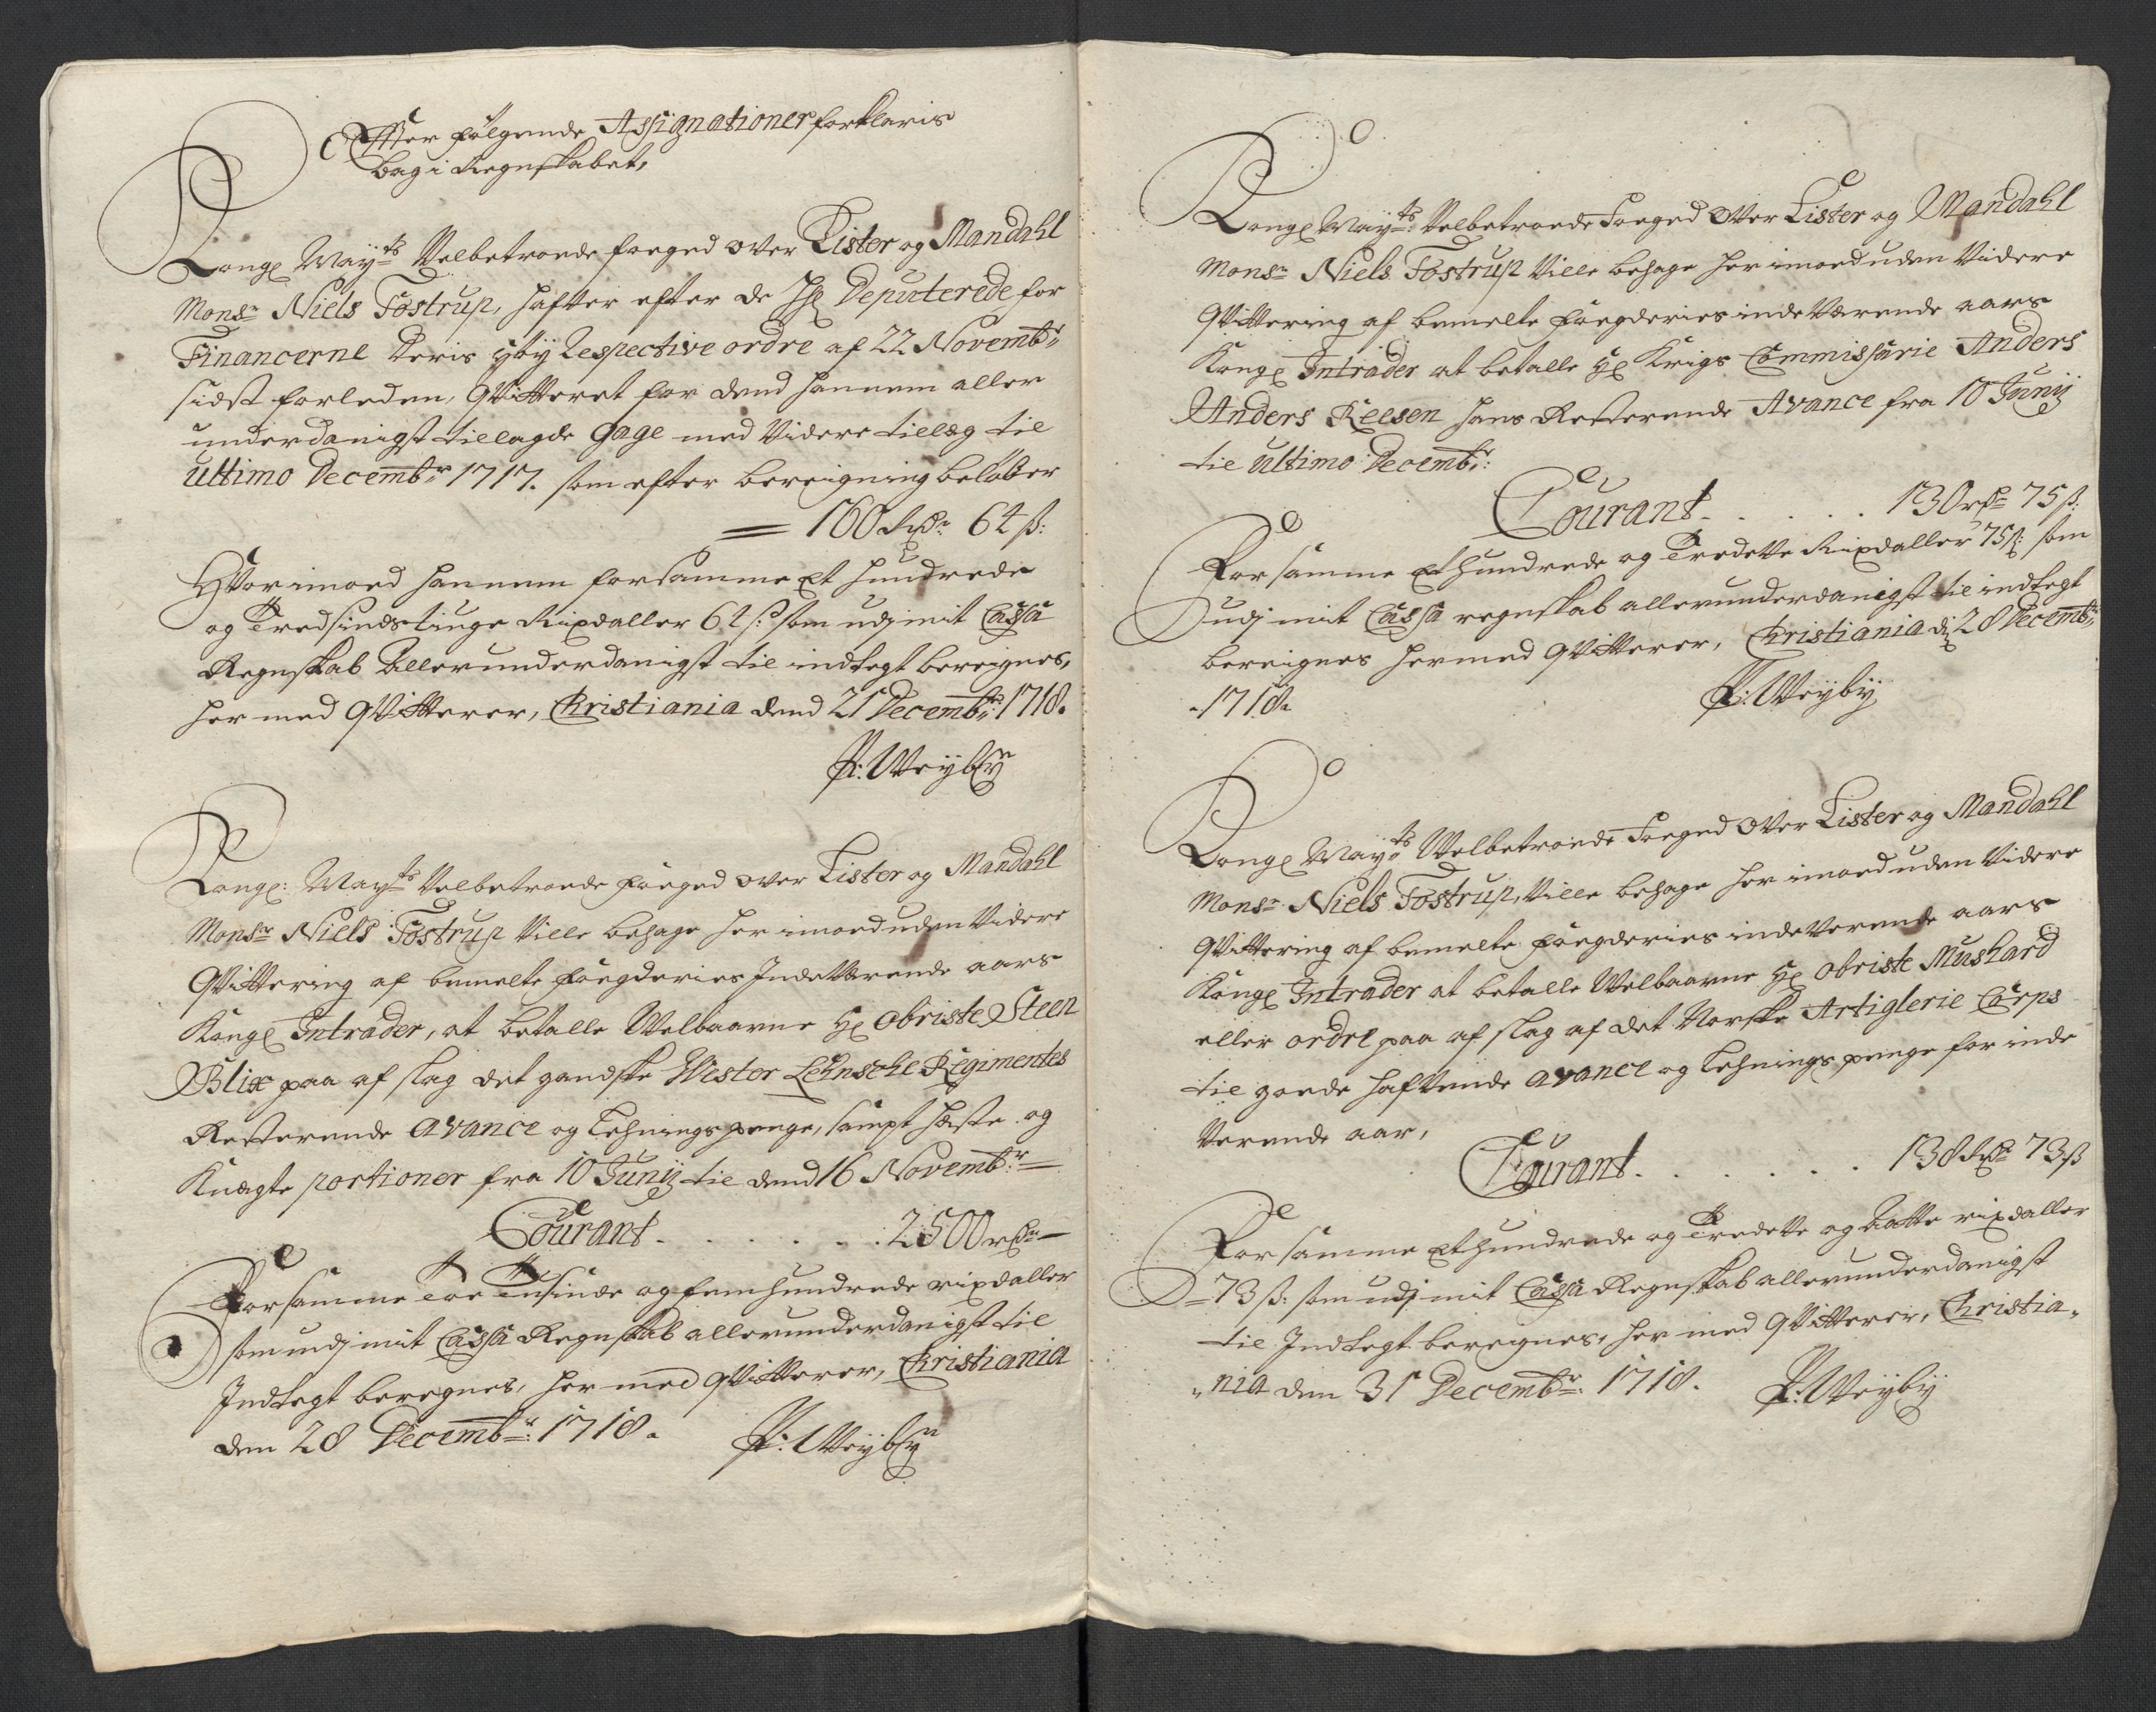 Effter følgende Assignationer forklaris
bag i Regnskabet,
Kongl Mayts Velbetroede foeged over Lister og Mandahl
Monsr Niels Tostrup, hafter efter de HHl Deputerede for
Financerne deris respective ordre af 22 Novembr
sidst forleden, qvitteret for dend hannem aller
underdanigst tillagde gage med videre tillæg til
ultimo Decembr 1717. som efter bereigning beløber
= 160 Rdr 64 ß:
Hvorimoed hannem for samme Et hundrede
og Tredsindstiuge Rixdaller 64 ß: som udj mit Cassa
Regnskab allerunderdanigst til indtegt bereignes,
her med qvitterer, Christiania dend 21 Decembr: 1718.
P: Weyby
Kongl: Mayts Velbetroede foeged over Lister og Mandahl
Monsr Niels Tostrup ville behage her imoed uden videre
qvittering af bemelte foegderies Indeværende aars
Kongl Intrader, at betalle Welbaarne Hl obriste Steen
Blix paa af slag det gandske Wester Lehnsche Regimentes
Resterende avance og Lehnings penge, sampt heste og
Knegte portioner fra 10 Junij til dend 16 Novembr
Courant . . . . . . 2500 rdr
For samme Toe Tusinde og fem hundrede rixdaller
som udj mit Cassa Regnskab allerunderdanigst til
Indtegt beregnes, her med qvitterer, Christiania
den 28 Decembr: 1718. P: Weyby
Kongl Mayts: Velbetroede Foeged over Lister og Mandahl
Monsr Niels Tostrup ville behage her imoed uden videre
qvittering af bemelte foegderies indeværende aars
Kongl Intrader at betalle Hl Krigs Commissarie Anders
Anders Keesen hans Resterende Avance fra 10 Junij
til ultimo Decembr:
Courant . . . . . 130 rdr 75 ß:
For samme Et hundrede og Tredette Rixdaller 75 ß: som
udj mit Cassa regnskab allerunderdanigst til indtegt
bereignes hermed qvitterer, Christiania d: 28 Decembr
1718. P: Weyby
Kongl Mayts Welbetroede Foeged over Lister og Mandahl
Monsr Niels Tostrup, ville behage her imoed uden videre
qvittering af bemelte foegderies indeverende aars
Kongl Intrader at betalle Welbaarne Hl obriste Mushard
eller ordre paa af slag af det Norske Artiglerie Corps
til goede haftende avance og Lehnings penge for inde
verende aar,
Courant . . . . . . 138 Rdr 73 ß
For samme Et hundrede og Tredette og aatte rixdaller
73 ß: som udj mit Cassa Regnskab allerunderdanigst
til Indtegt beregnes, her med qvitterer, Christia-
nia den 31 Decembr: 1718. P: Weyby